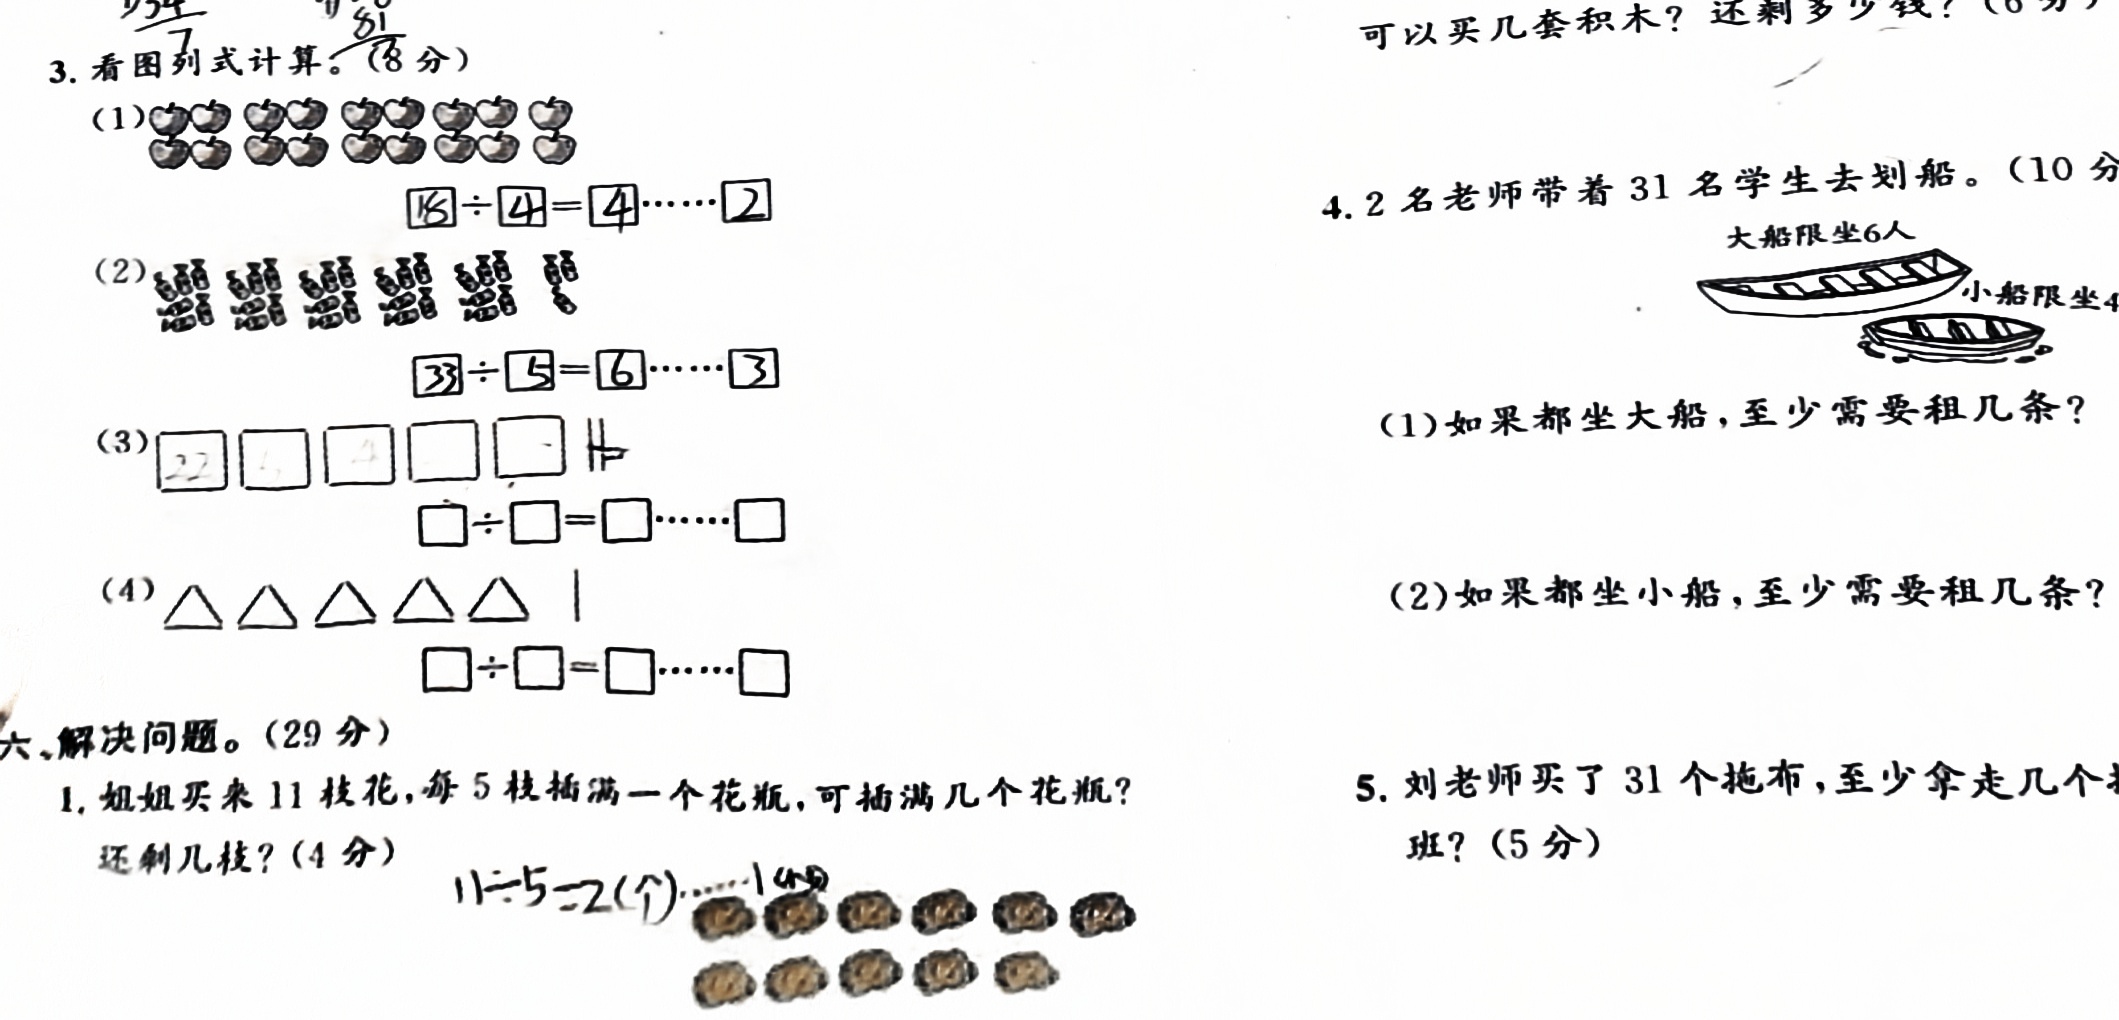 7
81
3. 看图列式计算。(8分)
(1)
18÷4=4……2
(2)
33÷5=6……3
(3) 22 4
□÷□=□……□
(4)
□÷□=□……□
六、解决问题。(29分)
1. 姐姐买来11枝花,每5枝插满一个花瓶,可插满几个花瓶?
还剩几枝?(4分)
11÷5=2(个)……1
可以买几套积木?还剩多少钱?(6分)
4. 2名老师带着31名学生去划船。(10分
大船限坐6人
小船限坐4
(1)如果都坐大船,至少需要租几条?
(2)如果都坐小船,至少需要租几条?
5. 刘老师买了31个拖布,至少拿走几个
班?(5分)